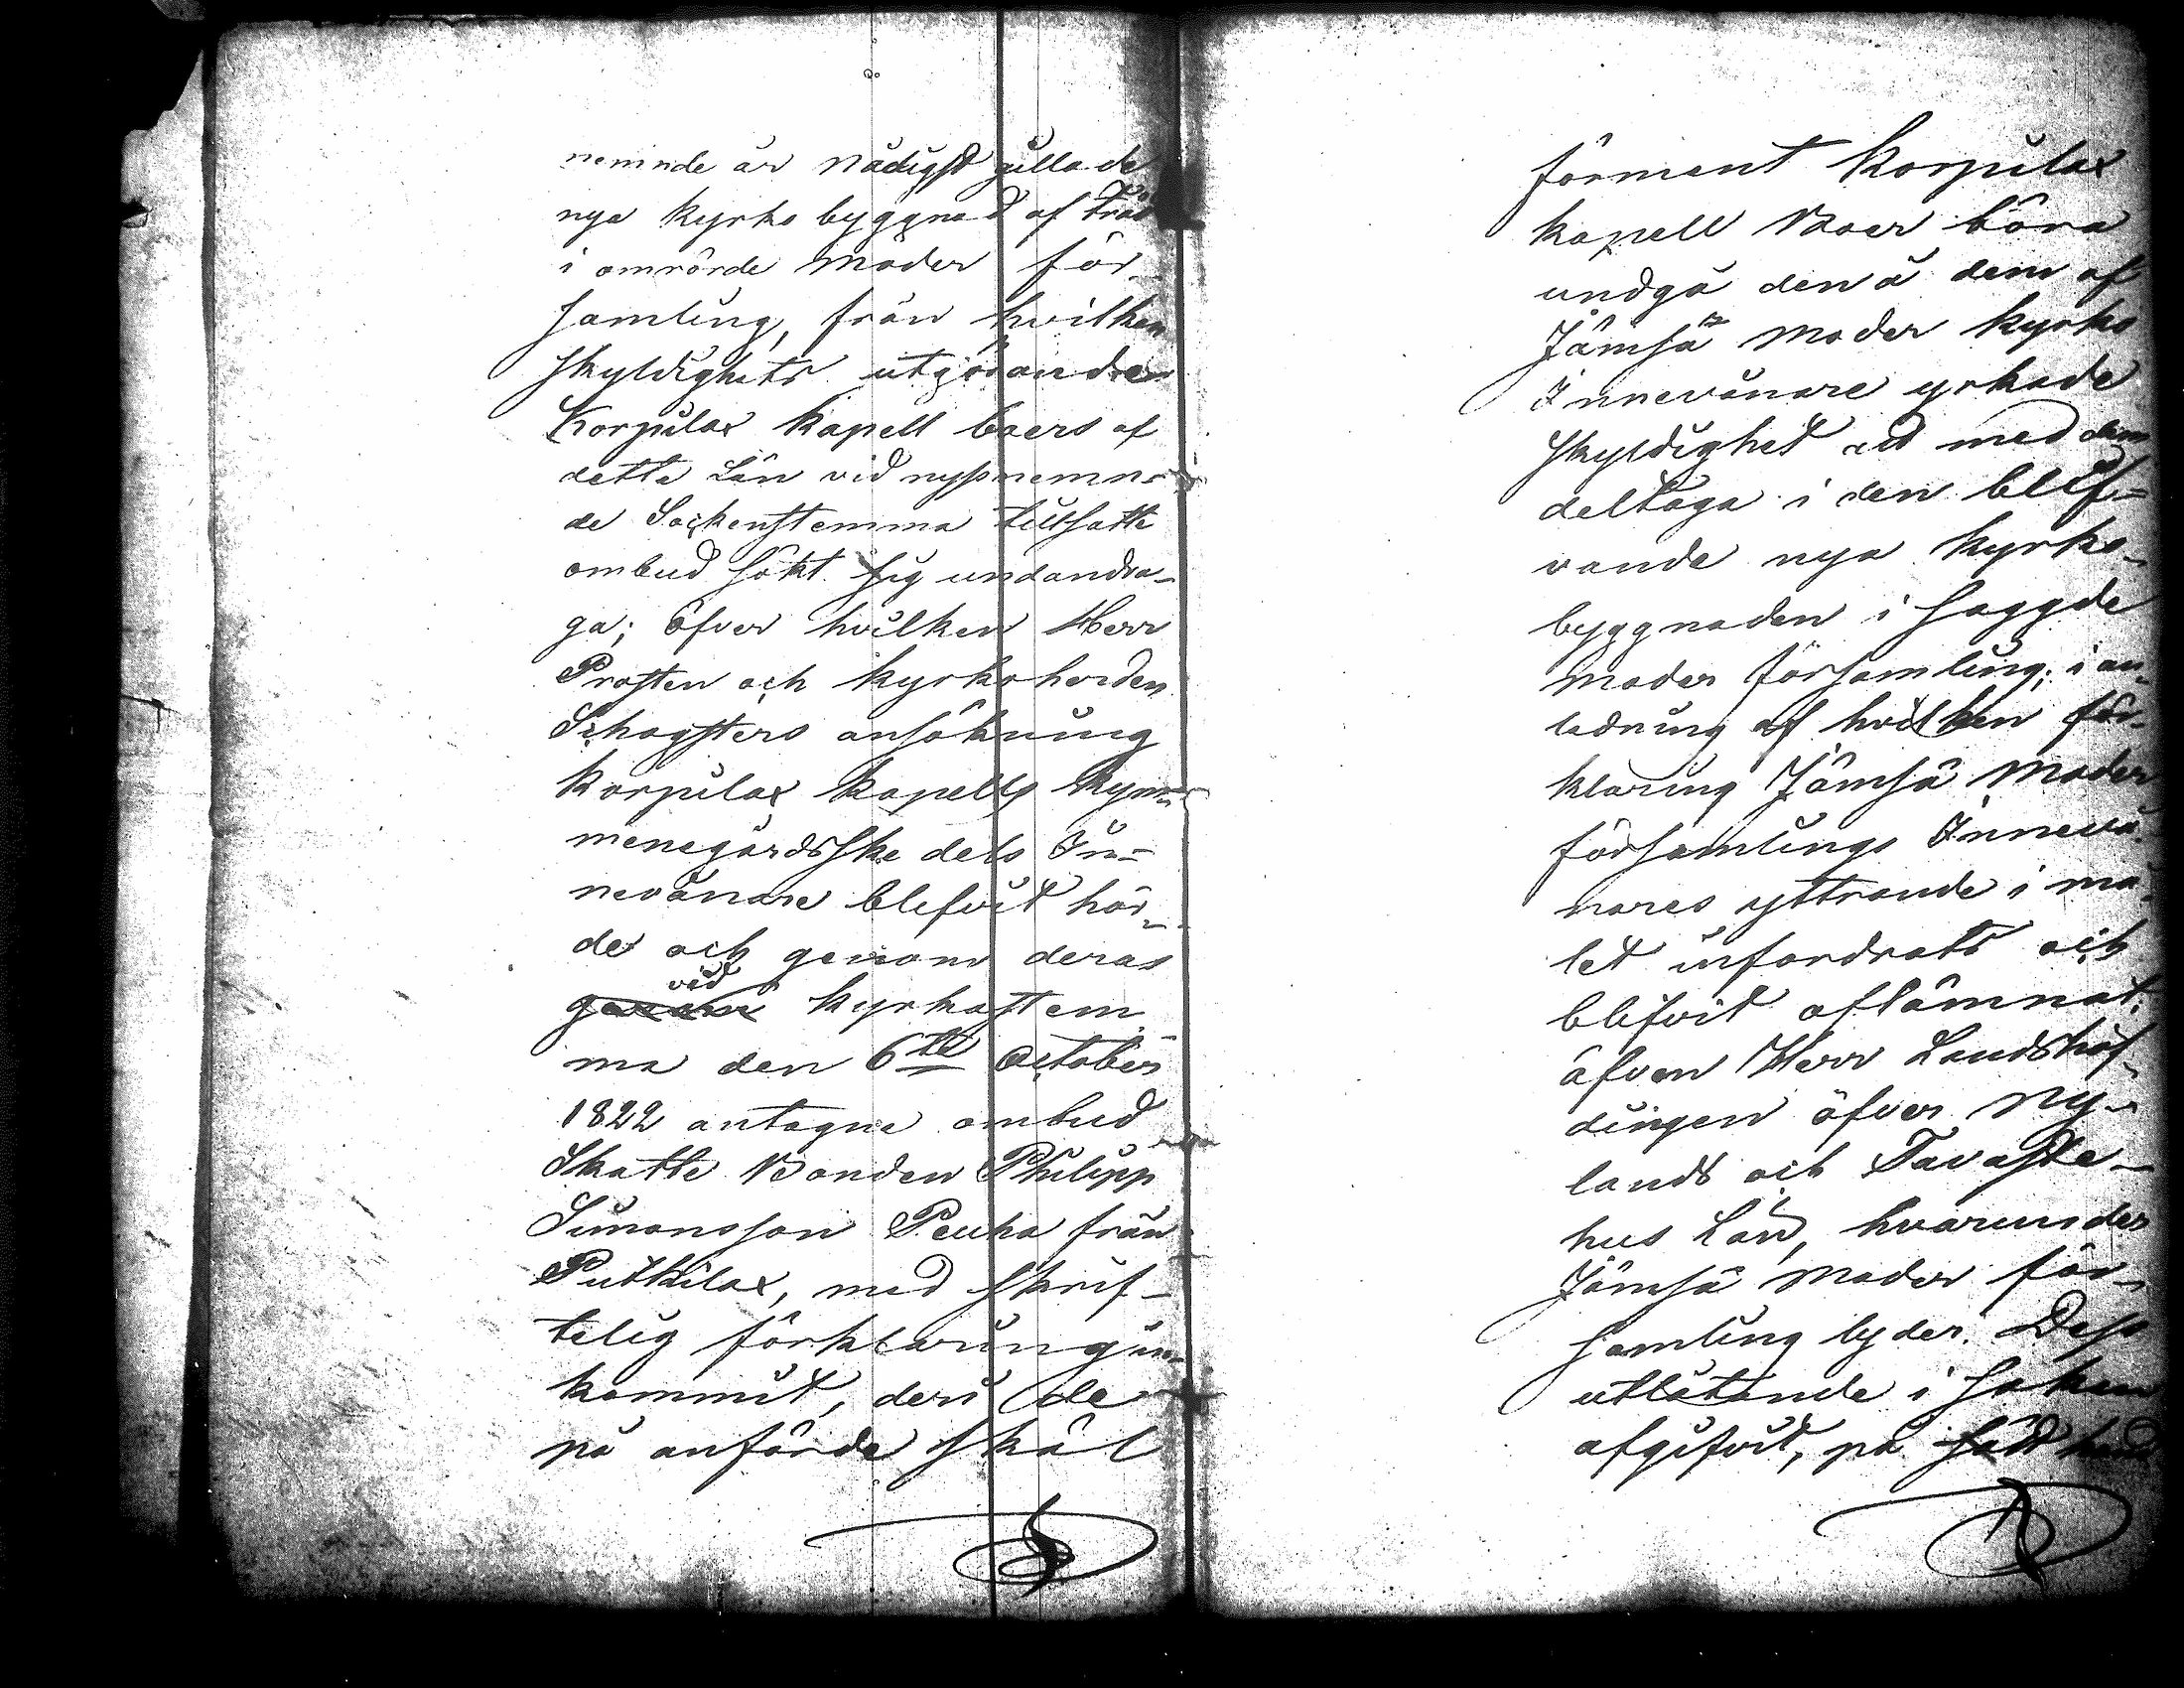 nemnde är Nådigst gillade
nya kyrko byggnad af Träd
i omrörde Moder för-
samling, från hvilken
skyldighets utgörande
Korpilax Kapell boers af
dette Län vid nyssnemn-
de Sockenstemma tillsatte
ombud sökt sig undandra-
ga; öfver hvilken Herr
Prosten och kyrkoherden
ansökning
Korpilax Kapells Kym-
menegårdsske dels In-
nevånare blefvit hör-
de och genom deras
vid
genom kyrkostem
ma den 6te October
1822 antagne ombud
Skatte Bonden Philipp
Simonsson Peuha från
Putkilax, med skrif-
telig förklaring in-
kommit, deri de
på anförde skäl
förment Korpilax
kapell Boer böra
undgå den å dem af
Jämsä Moder kyrko
Innevånare yrkade
skyldighet att med dem
deltaga i den blif-
vande nya kyrko-
byggnaden i saggde
Moder församling; i an-
ledning af hvilken för-
klaring Jämsä Moder
församlings Innevå-
nares yttrande i må-
let infordrats och
blifvit aflämnat;
äfven Herr Landshöf-
dingen öfver Ny-
lands och Tavaste-
hus Län, hvarunder
Jämsä Moder för-
samling lyder. Dess
utlåtande i saken
afgifvit, på sätt